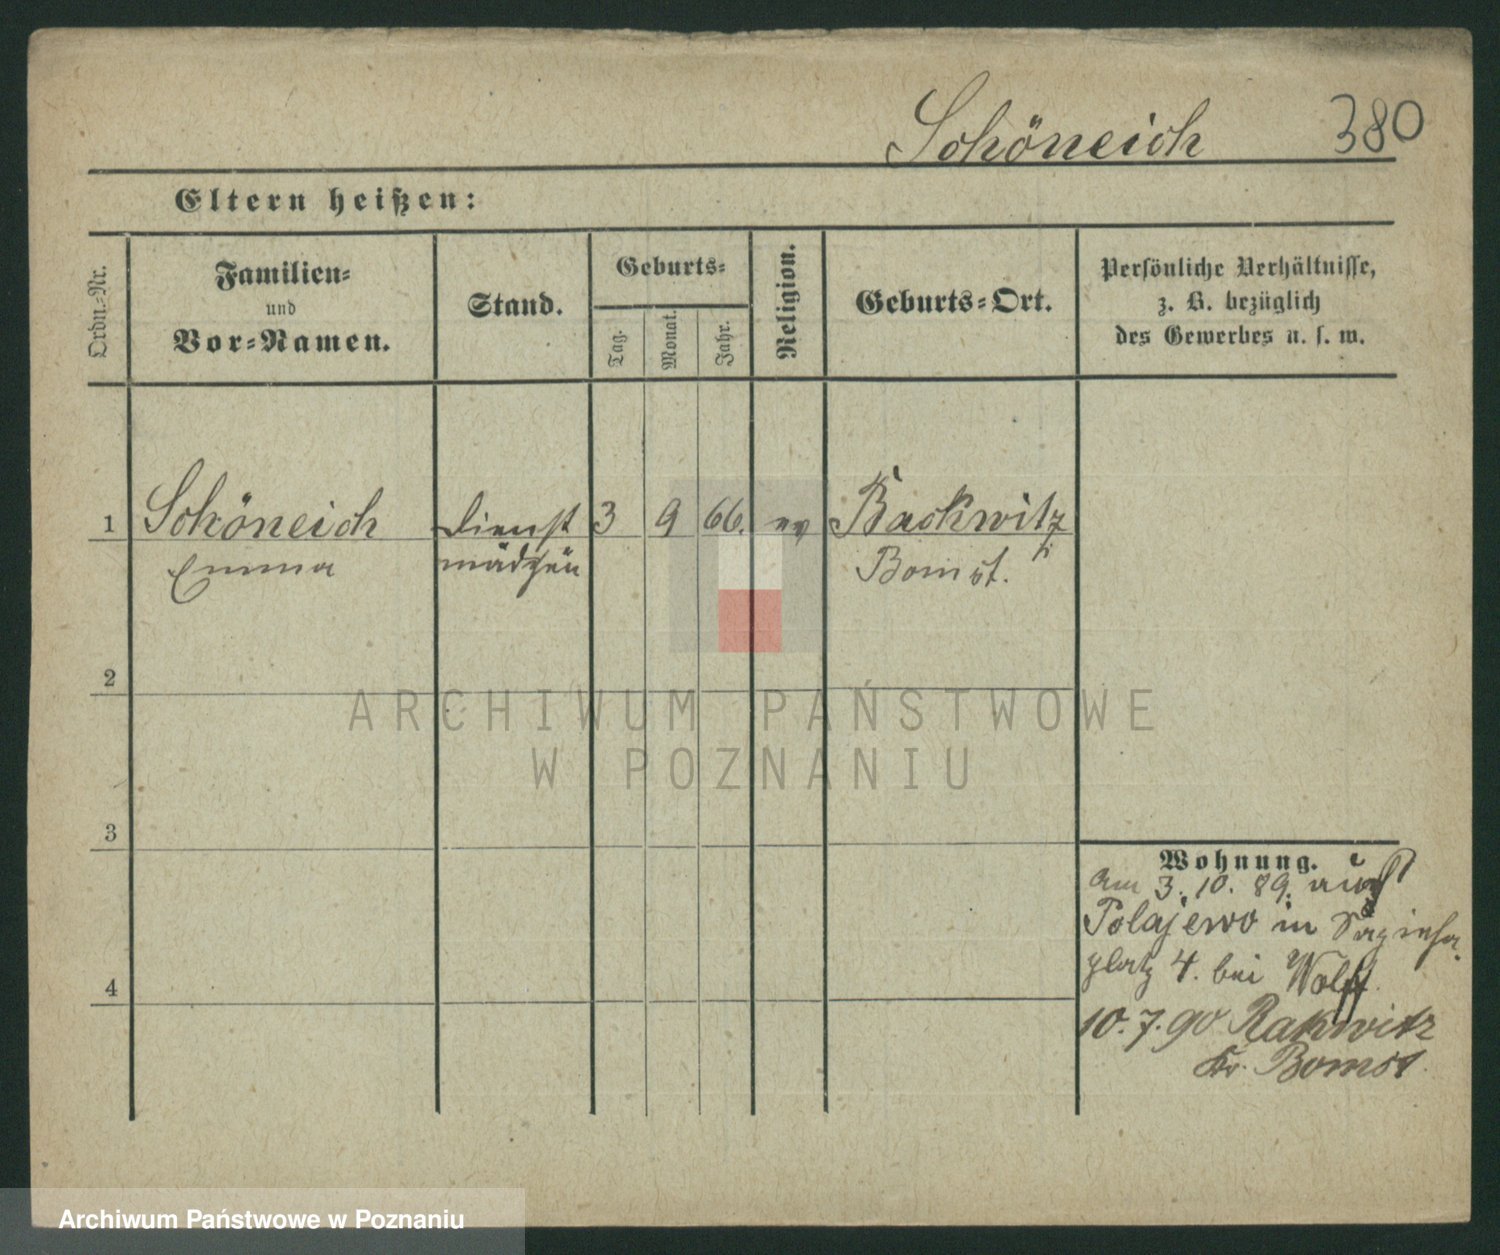 Schöneich 380
Eltern heißen:
Ordn.-Nr.
Familien-
und
Vor-Namen.
Stand.
Geburts-
Tag.
Monat.
Jahr.
Religion.
Geburts-Ort.
Persönliche Verhältnisse,
z. B. bezüglich
des Gewerbes u. s. w.
1 Schöneich Dienst 3 9 66. ev Backwitz
Emma mädchen Bomst.
2
ARCHIWUM PAŃSTWOWE
W POZNANIU
3
Wohnung.
am 3. 10. 89.
Polajewo in
platz 4. bei Wolff
4
10. 7. 90 Rakwitz
Kr. Bomst
Archiwum Państwowe w Poznaniu